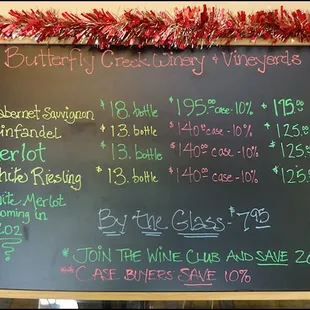 Butterfly Creek Winery & Vineyards
abernet Sauvignon $18. bottle $195.00 case-10% $175.00
infandel $13. bottle $140.00 case-10% $125.00
erlot $13. bottle $140.00 case-10% $125.
hite Riesling $13. bottle $140.00 case-10% $125.
ite Merlot
oming in
By the Glass- $7.95
* JOIN THE WINE CLUB AND SAVE 20
** CASE BUYERS SAVE 10%